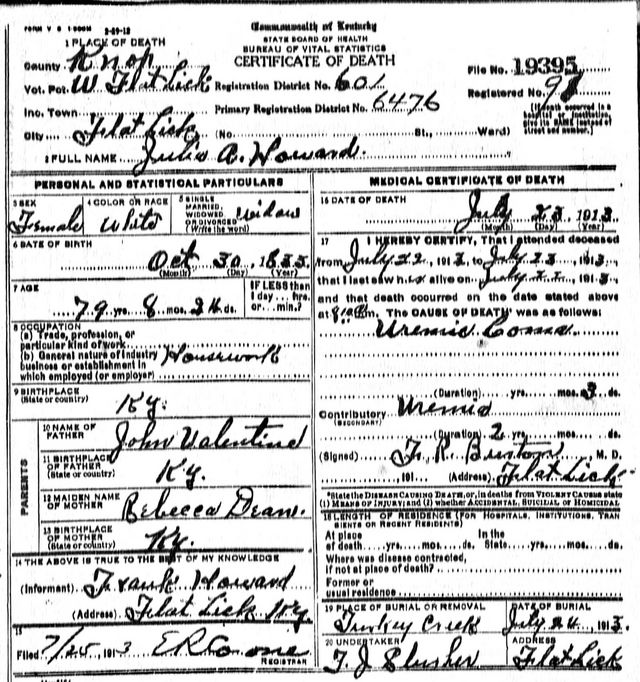 FORM V S 1 2-29-12
Commonwealth of Kentucky
STATE BOARD OF HEALTH
BUREAU OF VITAL STATISTICS
CERTIFICATE OF DEATH
1 PLACE OF DEATH
County Knox
Vot. Pct. W. Flat Lick Registration District No. 601
Inc. Town Primary Registration District No. 6476
City Flat Lick (No. St., Ward)
File No. 19395
Registered No.
(If death occurred in a hospital or institution, give its NAME instead of street and number.)
2 FULL NAME Julia A. Howard.
PERSONAL AND STATISTICAL PARTICULARS
3 SEX Female
4 COLOR OR RACE White
5 SINGLE, MARRIED, WIDOWED OR DIVORCED (Write the word) Widow
6 DATE OF BIRTH
Oct 30 (Month) (Day) (Year)
7 AGE
79 yrs. 8 mos. 24 ds.
IF LESS than 1 day... hrs. or... min.?
8 OCCUPATION
(a) Trade, profession, or particular kind of work
(b) General nature of industry business or establishment in which employed (or employer) Housework
9 BIRTHPLACE (State or country) Ky.
PARENTS
10 NAME OF FATHER John Valentine
11 BIRTHPLACE OF FATHER (State or country) Ky.
12 MAIDEN NAME OF MOTHER Rebecca Dean.
13 BIRTHPLACE OF MOTHER (State or country) Ky.
14 THE ABOVE IS TRUE TO THE BEST OF MY KNOWLEDGE
(Informant) Frank Howard
(Address) Flat Lick Ky.
15
Filed 7/25, 1913 REGISTRAR
MEDICAL CERTIFICATE OF DEATH
16 DATE OF DEATH
July 23 1913
(Month) (Day) (Year)
17 I HEREBY CERTIFY, That I attended deceased
from July 22, 1913, to July 23, 1913,
that I last saw h alive on July 22, 1913,
and that death occurred on the date stated above
at 8 m. The CAUSE OF DEATH was as follows:
Uremic Coma
(Duration) yrs. mos. 3 ds.
Contributory (SECONDARY) Uremia
(Duration) 2 yrs. mos. ds.
(Signed) F. R. Burton, M. D.
191 (Address) Flat Lick
*State the DISEASE CAUSING DEATH, or, in deaths from VIOLENT CAUSES state
(1) MEANS OF INJURY; and (2) whether ACCIDENTAL, SUICIDAL OR HOMICIDAL.
18 LENGTH OF RESIDENCE (FOR HOSPITALS, INSTITUTIONS, TRANSIENTS OR RECENT RESIDENTS)
At place of death yrs. mos. ds. In the State yrs. mos. ds.
Where was disease contracted, if not at place of death?
Former or usual residence
19 PLACE OF BURIAL OR REMOVAL Turkey Creek
DATE OF BURIAL July 24 1913
20 UNDERTAKER T. J. Slusher
ADDRESS Flat Lick